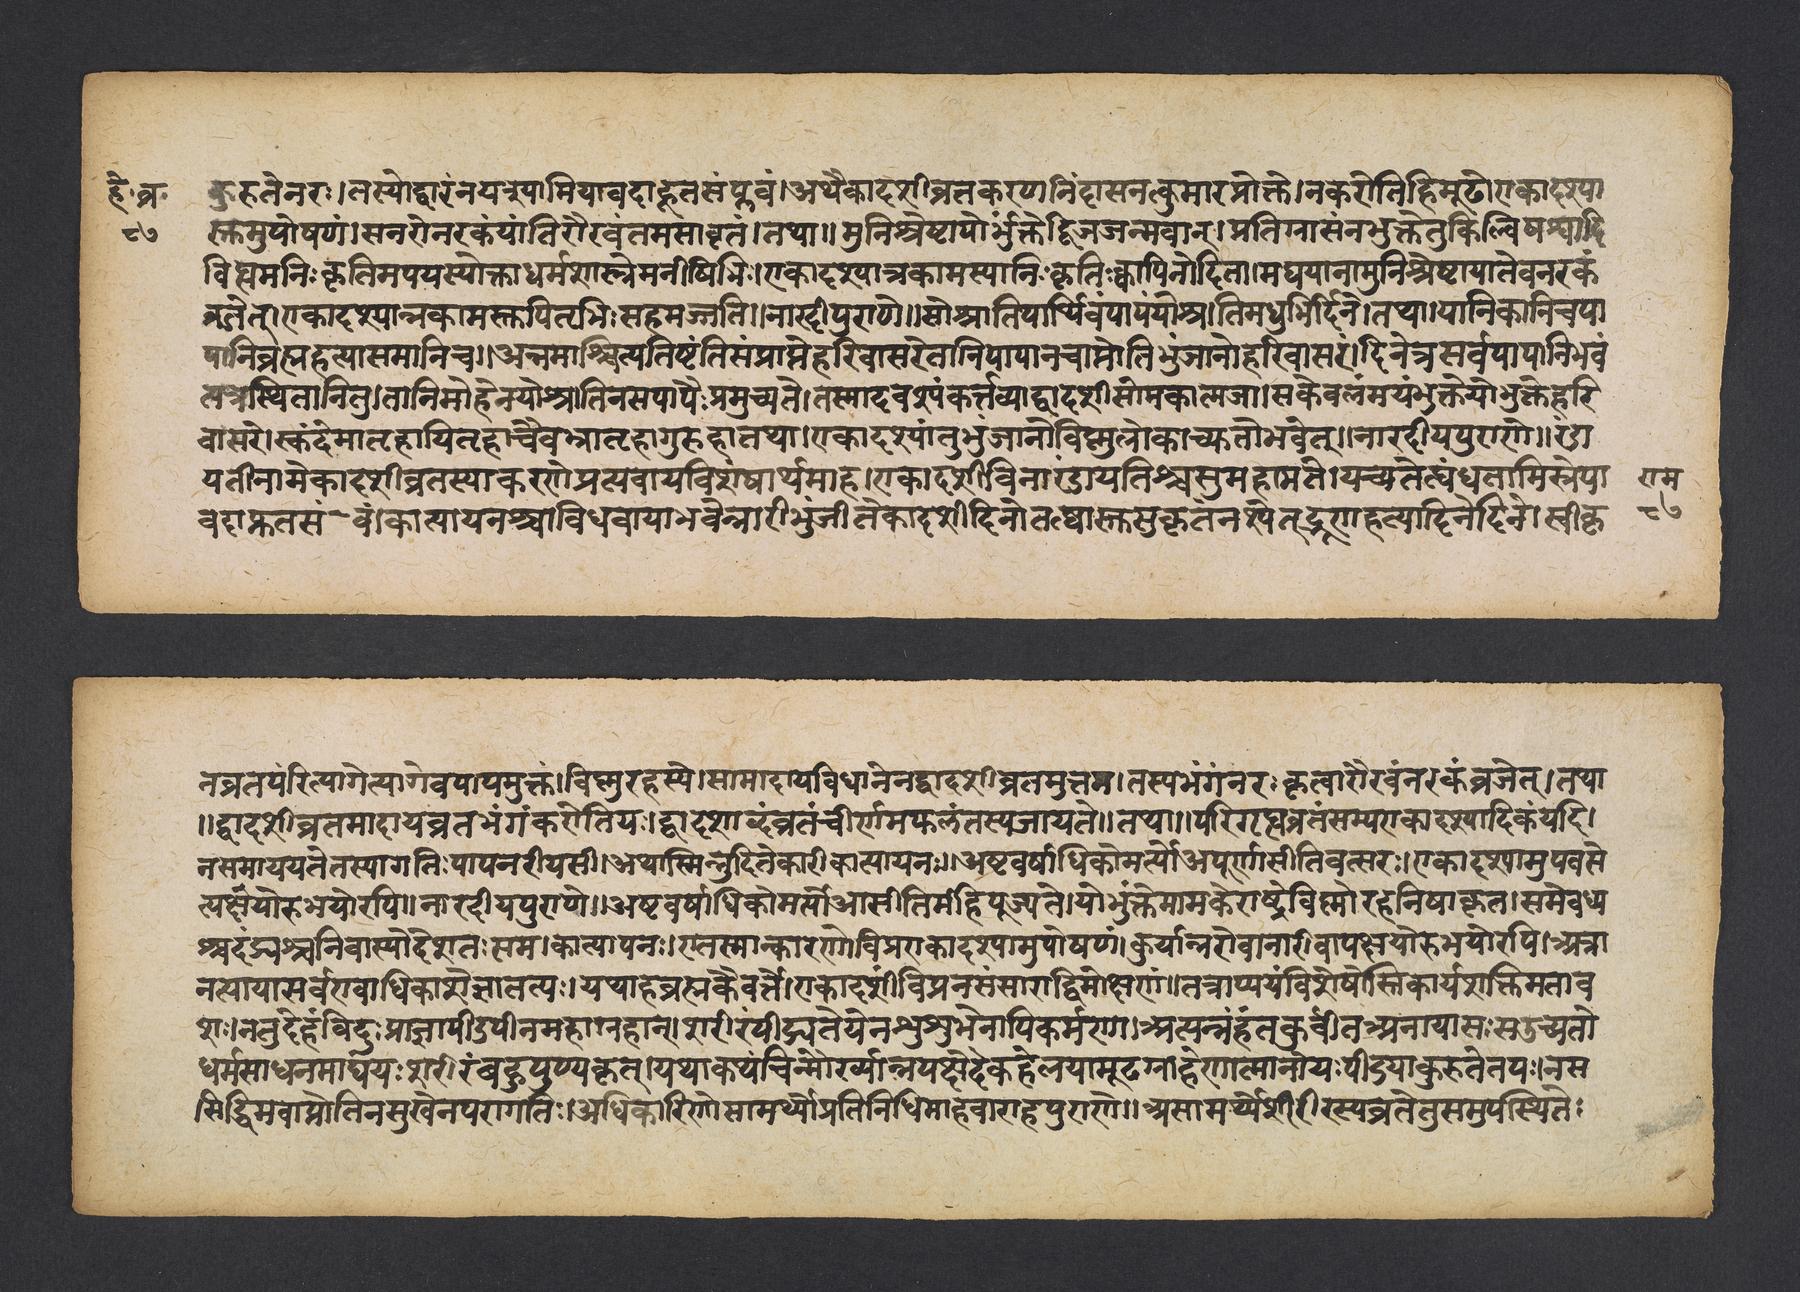 हे.व्र.
कुरुतेनरः।तस्योद्धारंनयत्रेपामियावदाहूतसंप्लुवं।अथैकादशीव्रतकरणनिंदासनत्कुमारप्रोक्ते।नकरोतिहिमूढोएकादश्या
८७
स्क्तमुपोषणं।सनरोनरकंयांतिरौरवंतमसावृतं।तथा॥मुनिश्रेष्टायोर्भुक्तेद्विजजन्मवान्।प्रतिग्रासंनभुक्तेतुकिल्विषश्वादि
विष्टमनिःकृतिमपयस्योक्ताधर्मशास्त्रेमनीषिभिः।एकादश्यान्नकामस्यानिःकृतिःक्वापिनोदिता।मद्ययानामुनिश्रेष्टायातेवनरकं
व्रजेत्।एकादश्यान्नकामस्क्तपितृभिःसहमज्जति॥नारदीपुराणे॥सोश्नातिपार्थिवंपापंयोश्नातिमधुभिर्दिने।तथा।यानिकानिचपा
पानिब्रह्महत्यासमानिच॥अन्नमाश्रित्यतिष्टंतिसंप्राप्तेहरिवासरेतानिपापानचाप्नोतिभुंजानोहरिवासरे।दिनेत्रसर्वपापानिभवं
त्यन्नेस्थितानितु।तानिमोहेनयोश्नातिनसपापैःप्रमुच्यते।तस्मादवश्यंकर्त्तव्याद्वादशीसोमकात्मजा।सकेवलंमयंभुक्तेयोभुक्तेहरि
वासरे।स्कंदेमातृहापितृहाचैवभ्रातृहागुरुहातथा।एकादश्यांतुभुंजानोविष्णुलोकाच्च्युतोभवेत्॥नारदीयपुराणे॥डा
यतीनामेकादशीव्रतस्याकरणेप्रत्यवायविशेषार्थमाह।एकादशीविनारंडायतिश्चसुमहामते।पच्यतेत्यंधतामिस्रेपा
राम
वदाभूतसं-वं।कात्यायनश्चाविधवायाभवेन्नारीभुंजीतेकादशीदिने।तस्यास्क्तसुकृतंनश्येत्भ्रूणहत्यादिनेदिने।स्त्रीकृ
८७
नव्रतपरित्यागेत्यागेवपापमुक्तं।विष्णुरहस्ये।सामादायविधानेनद्वादशीव्रतमुत्तमं।तस्यभंगंनरःकृत्वारौरवंनरकंव्रजेत्।तथा
॥द्वादशीव्रतमादायव्रतभंगंकरोतियः।द्वादशाब्दंव्रतंचीर्णमफलंतस्यजायते॥तथा॥परिगृह्यव्रतंसम्यएकादश्यादिकंयदि।
नसमाययतेतस्यागतिःपापनरीयसी।अथास्मिन्नुदितेकारीकात्यायनः॥अष्टवर्षाधिकोमर्त्योअपूर्णाशीतिवत्सरः।एकादश्यामुपवसे
त्पक्षयोरुभयोरपि॥नारदीयपुराणे॥अष्टवर्षाधिकोमर्त्योआसीतिर्महिपूज्यते।योभुंक्तेमामकेराष्ट्रेविष्णोरहनिपापकृत्।समेवध्य
श्चदंड्यश्चनिवास्योदेशतःसमे।कात्यायनः।एतस्मात्कारणेविप्रएकादश्यामुपोषणं।कुर्यान्नरोवानारीवापक्षयोरुभयोरपि।अत्रा
नत्यायासर्वएवाधिकारीज्ञातत्यः।यथाहेब्रह्मकैवर्त्ते।एकादशींविप्रनसंसाराद्विमोक्षणं॥तत्राप्ययंविशेषोस्तिकार्यशक्तिमताव
शः।नेतुर्देहंविदुःप्राज्ञापीडपीनमहाग्रहान्।शरीरंपीड्यतेयेनशुशुभेनापिकर्मणा।अत्यन्तंहंतकुर्वीतअनायासःसउच्यतो
धर्मसाधनमार्घयःशरीरंबहुपुण्यकृत्।यथाकथंचिन्मौर्ख्यान्नपष्टोदेकहेलयामूढग्राहेणात्मानोयःपीडयाकुरुतेतपः।नस
सिद्धिमवाप्नोतिनसुखेनपरागतिः।अधिकारिणोसामर्थ्येप्रतिनिधिमाहवाराहपुराणे॥असामर्थ्येशरीरस्यव्रतेतुसमुपस्थितेः